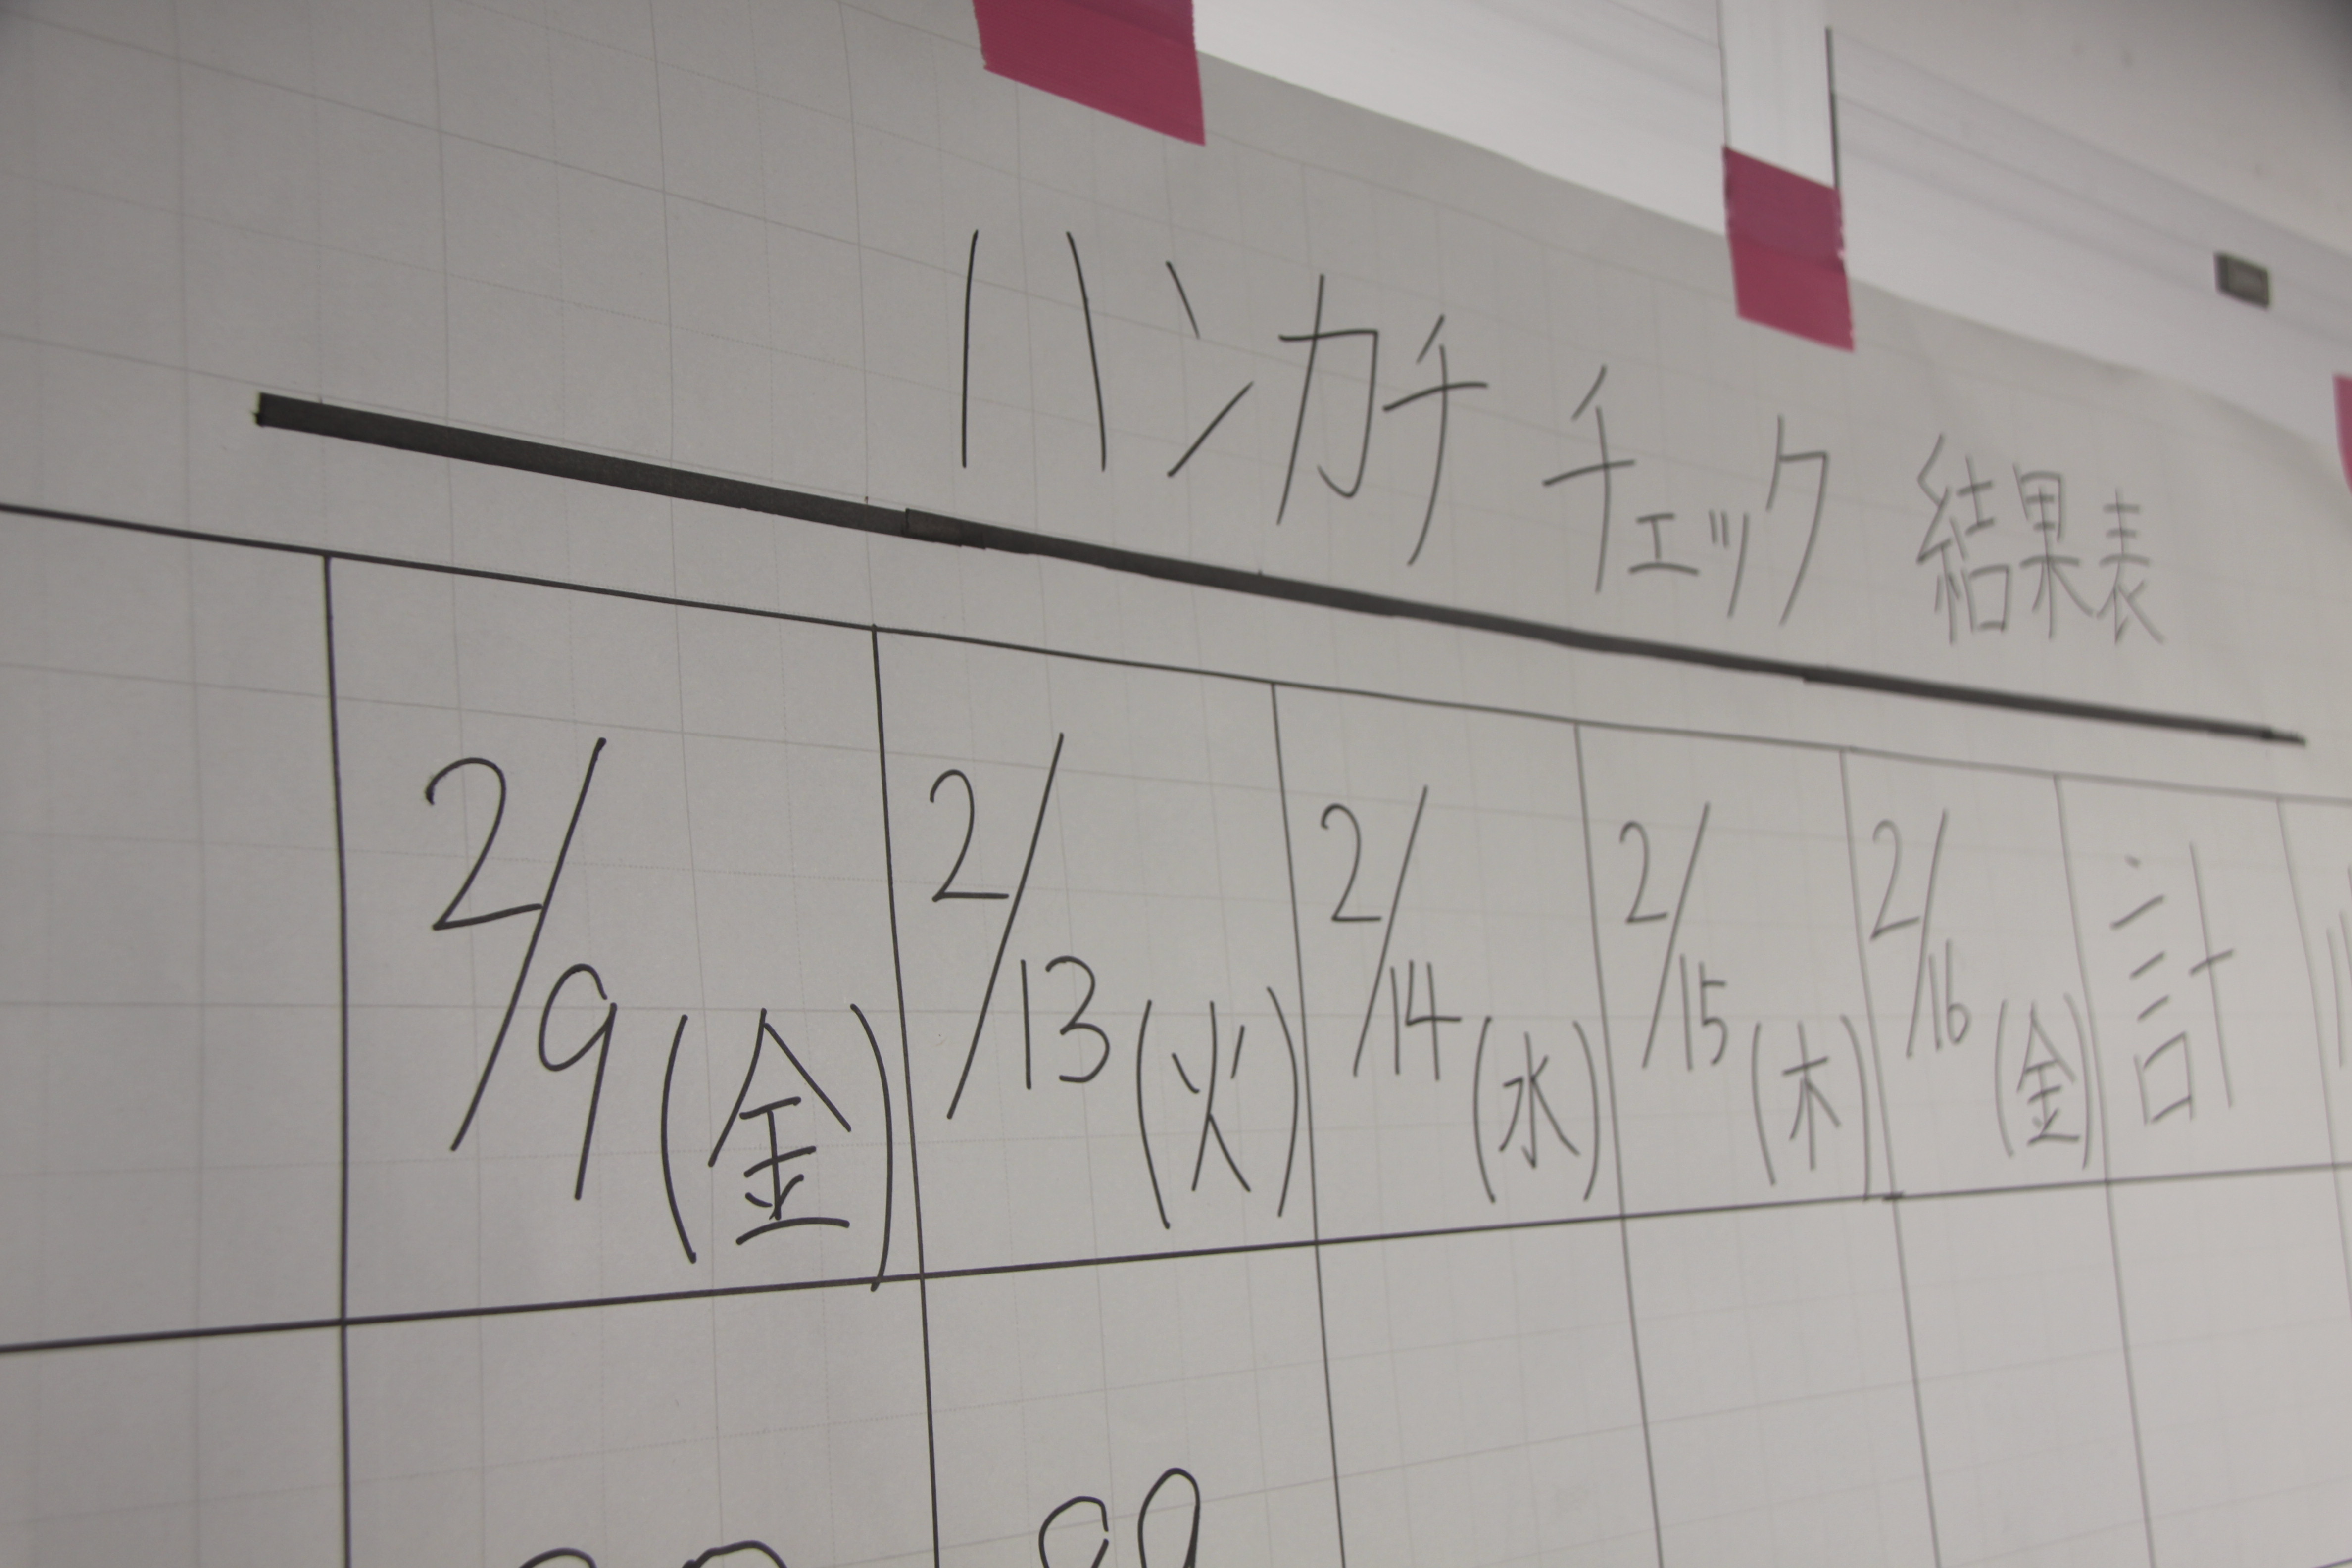 ハンカチチェック 結果表
2/9(金) 2/13(火) 2/14(水) 2/15(木) 2/16(金) 計